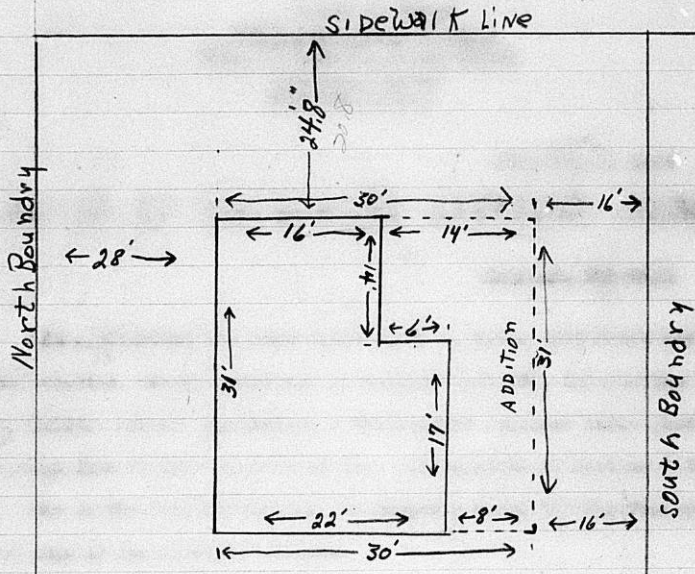 SIDEWALK LINE
24'8"
20.8
30'
16'
16'
14'
North Boundry
28'
14'
6'
31'
17'
ADDITION
31'
South Boundry
22'
8'
16'
30'